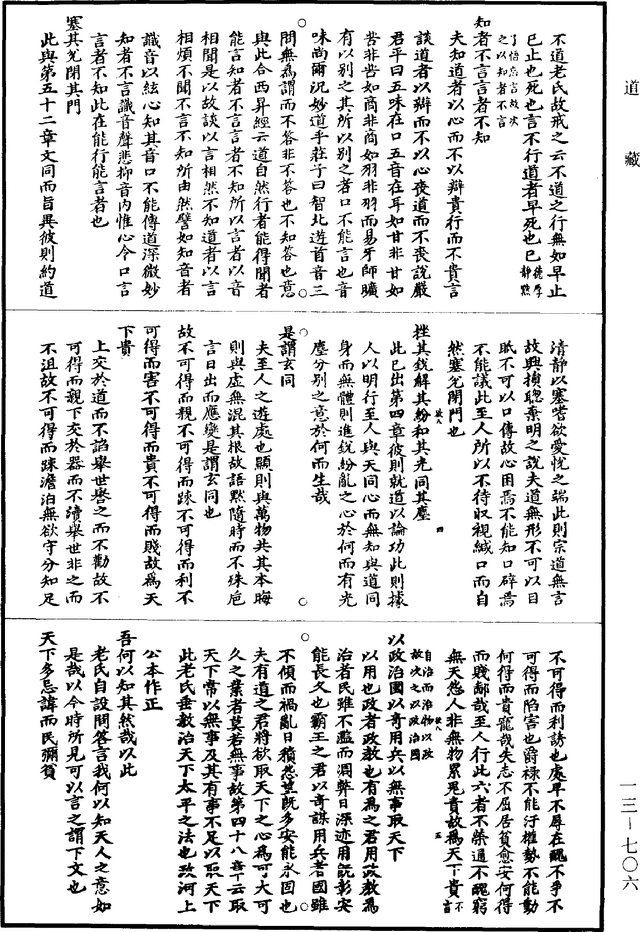 道藏
不道老氏故戒之云不道之行無如早止
已止也死也言不行道者早死也已德厚靜默
了悟忘言故次之以知者不言
知者不言言者不知
夫知道者以心而不以辯貴行而不貴言
談道者以辯而不以心喪道而不喪說嚴
君平曰五味在口五音在耳如甘非甘如
苦非苦如商非商如羽非羽而易牙師曠
有以別之其所以別之者口不能言也音
味尚爾況妙道乎莊子曰智北遊首音三
問無為謂而不答非不答也不知答也意
與此合西昇經云道自然行者能得聞者
能言知者不言言者不知所以言者以音
相聞是以故談以言相然不知道者以言
相煩不聞不言不知所由然譬如知音者
識音以絃心知其音口不能傳道深微妙
知者不言識音聲悲抑音內惟心令口言
言者不知此在能行能言者也
塞其兌閉其門
此與第五十二章文同而旨異彼則約道
清靜以塞嗜欲愛悅之端此則宗道無言
故興損聰棄明之說夫道無形不可以目
眂不可以口傳故心困焉不能知口辟焉
不能議此至人所以不待収視緘口而自
然塞兌閉門也
挫其銳解其紛和其光同其塵
此已出第四章彼則就道以論功此則據
人以明行至人與天同心而無知與道同
身而無體則進銳紛亂之心於何而有光
塵分別之意於何而生哉
是謂玄同
夫至人之遊處也顯則與萬物共其本晦
則與虛無混其根故語默隨時而不殊卮
言日出而應變是謂玄同也
故不可得而親不可得而踈不可得而利不
可得而害不可得而貴不可得而賤故為天
下貴
上交於道而不諂舉世譽之而不勸故不
可得而親下交於器而不瀆舉世非之而
不沮故不可得而踈澹泊無欲守分知足
不可得而利誘也處卑不辱在醜不爭不
可得而陷害也爵祿不能汙權勢不能動
何得而貴寵哉失志不屈居貧愈安何得
而賤鄙哉至人行此六者不榮通不醜窮
無天怨人非無物累鬼責故為天下貴言不
自治而治物以政故次之以政治國
以政治國以奇用兵以無事取天下
以用也政者政教也有為之君用政教為
治者民雖不濫而凋弊日深迹用既彰安
能長久也霸王之君以奇謀用兵者國雖
不傾而禍亂日積怨望既多安能永固也
夫有道之君將欲取天下之心為可大可
久之業者莫若無事故第四十八章云取
天下常以無事及其有事不足以取天下
此老氏垂教治天下太平之法也政河上
公本作正
吾何以知其然哉以此
老氏自設問答言我何以知天人之意如
是哉以今時所見可以言之謂下文也
天下多忌諱而民彌貧
一三—七〇六